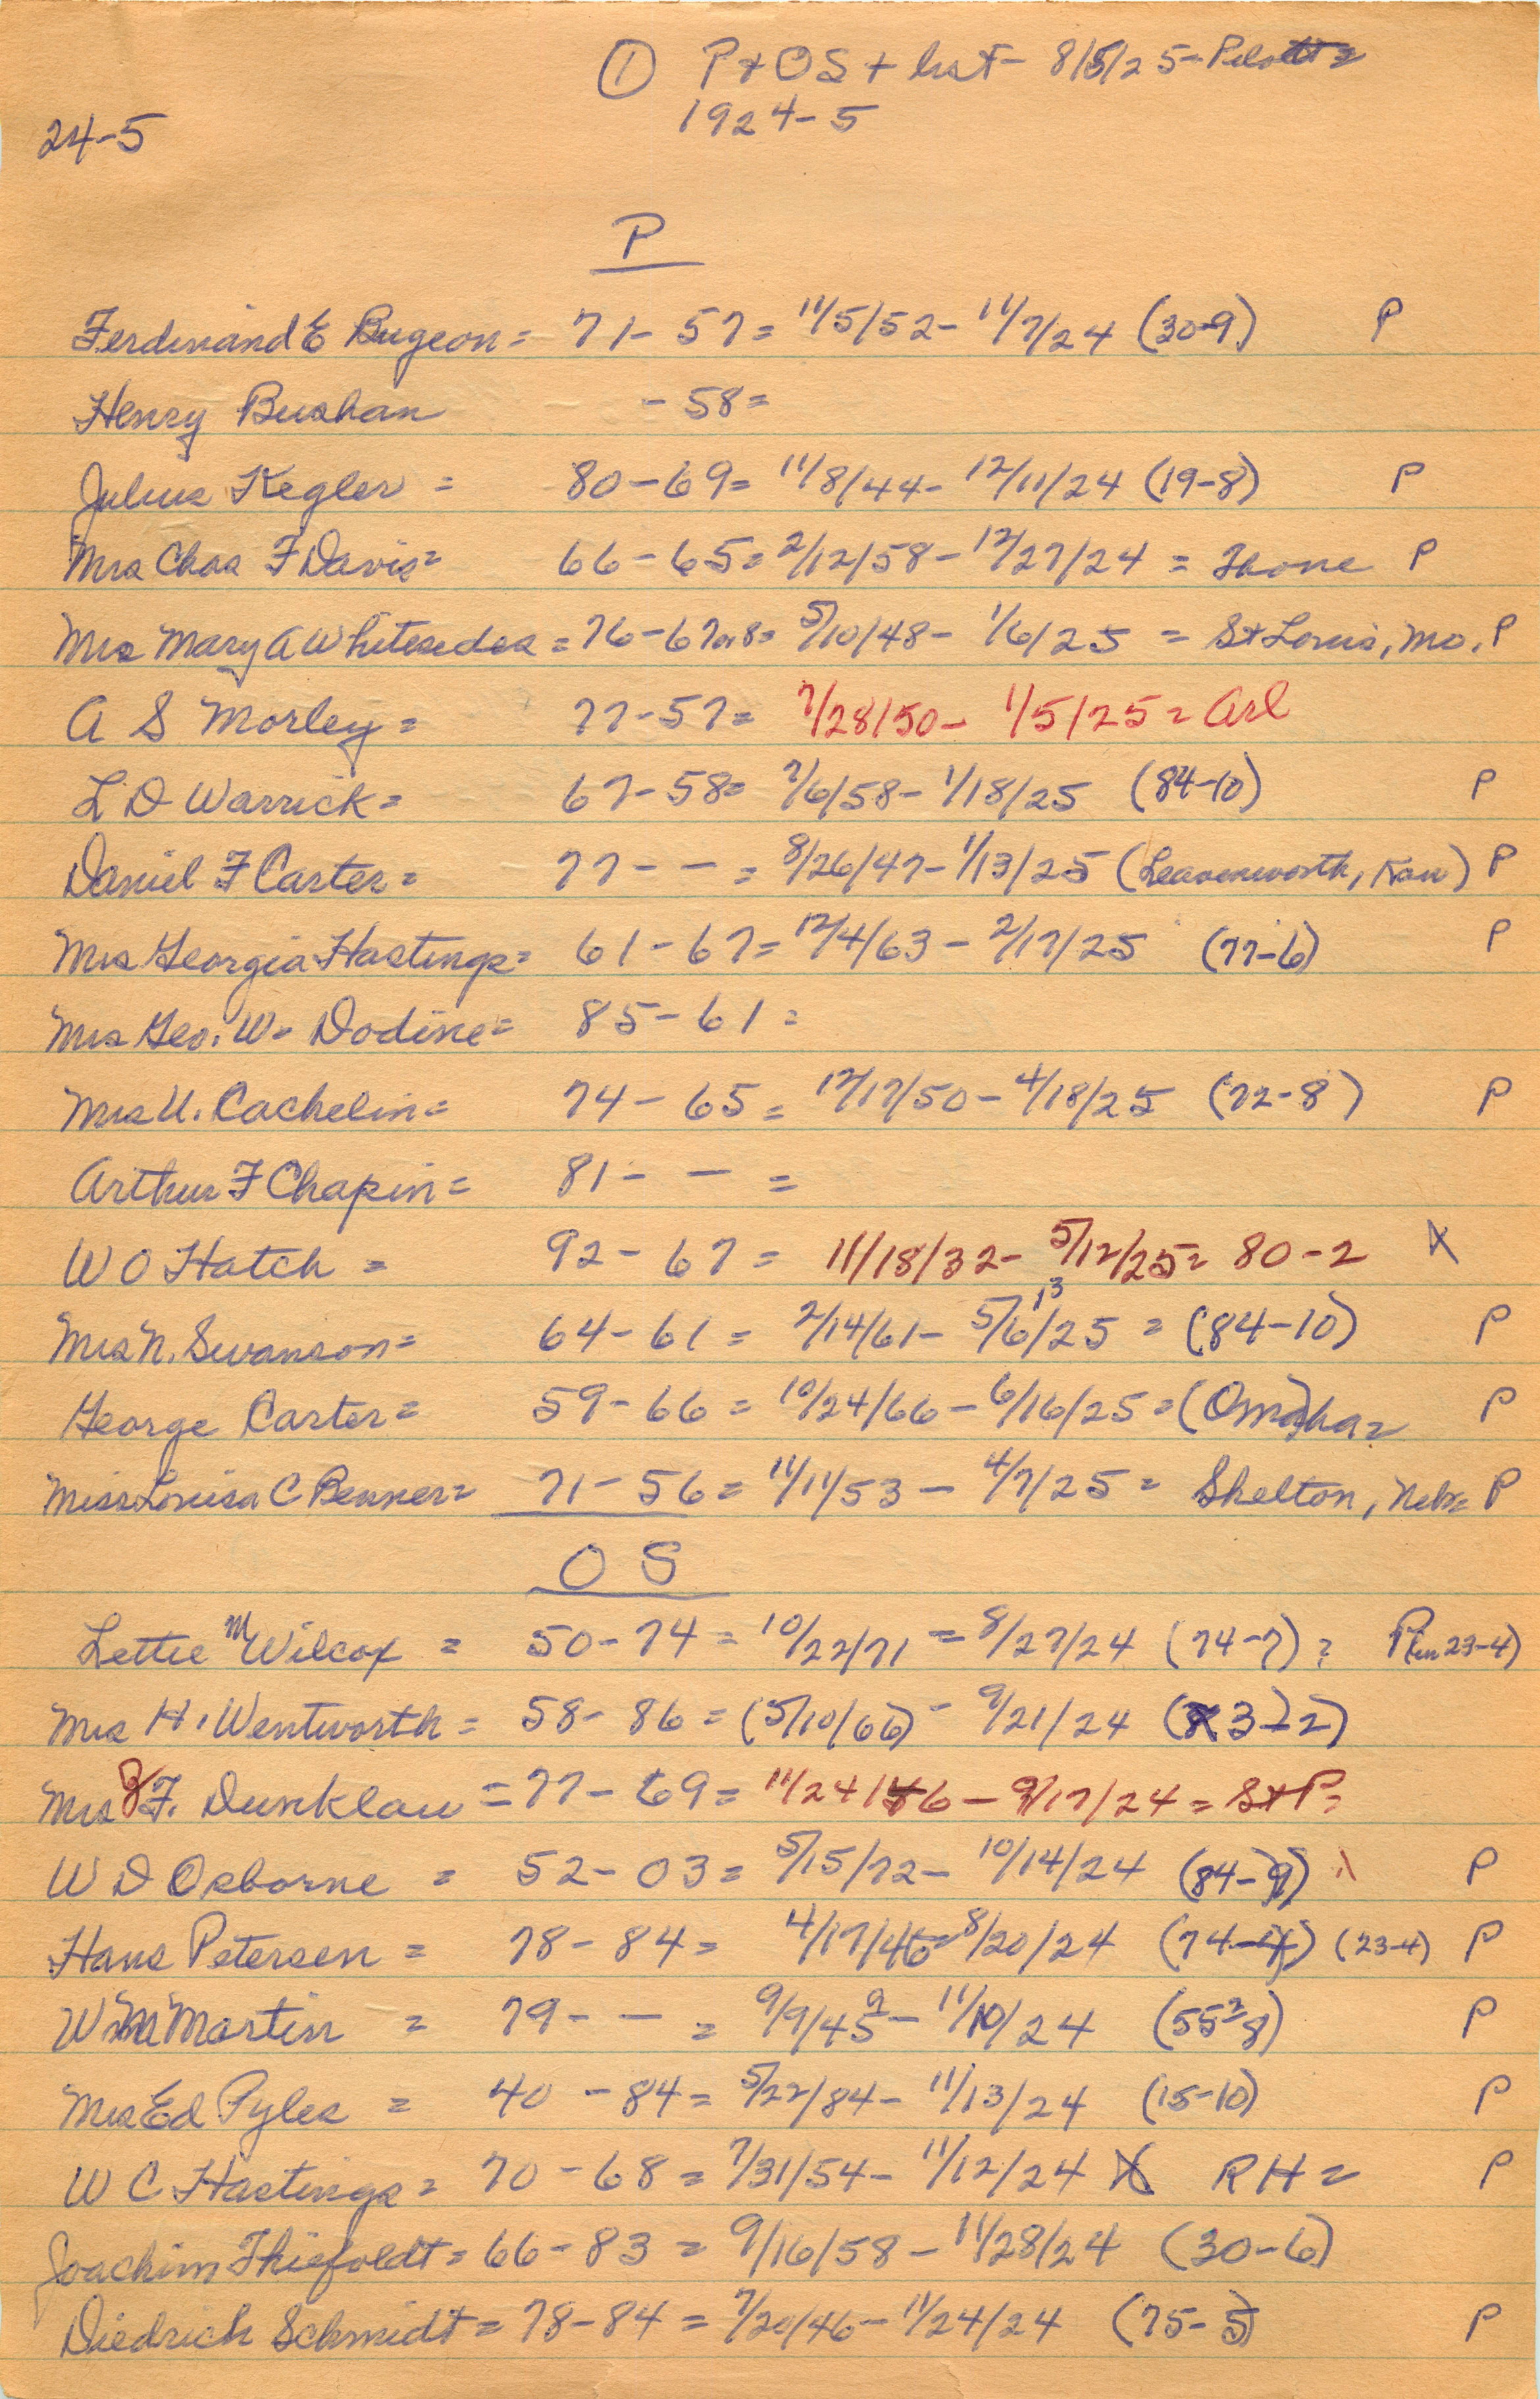 ① P+OS+ list - 8/5/25 =
1924-5
24-5
P
Ferdinand E Bugeon = 71-57= 11/5/52 - 11/7/24 (30-9) P
Henry Bushan - 58=
Julius Kegler = 80-69= 11/8/44 - 12/11/24 (19-8) P
Mrs Chas F Davis= 66-65= 2/12/58 - 12/27/24 = P
Mrs Mary A Whitesides = 76-67or8= 5/10/48 - 1/6/25 = St Louis, Mo. P
A S Morley = 77-57= 7/28/50 - 1/5/25 = Arl
L D Warrick = 67-58= 7/6/58 - 1/18/25 (84-10) P
Daniel F Carter = 77- - = 8/26/47 - 1/13/25 (Leavenworth, Kan) P
Mrs Georgia Hastings= 61-67= 12/4/63 - 2/17/25 (77-6) P
Mrs Geo. W. Dodine= 85-61=
Mrs U. Cachelin= 74-65= 12/17/50 - 4/18/25 (72-8) P
Arthur F Chapin = 81- - =
W O Hatch = 92-67= 11/18/32 - 5/12/25= 80-2 X
Mrs N. Swanson= 64-61= 2/14/61 - 5/6/25 = (84-10) P
13
George Carter = 59-66= 10/24/66 - 6/16/25 = (Omaha= P
Miss Louisa C Benner= 71-56= 11/11/53 - 4/7/25 = Shelton, Nebr= P
O S
Lettie M Wilcox = 50-74= 10/22/71 = 8/27/24 (74-7) = P(in 23-4)
Mrs H. Wentworth = 58-86= (5/10/66) - 9/21/24 3-2)
Mrs J F. Dunklau = 77-69= 11/24/46 - 9/17/24 = St P=
W D Osborne = 52-03= 5/15/72 - 10/14/24 (84-9) P
Hans Petersen = 78-84= 4/17/46= 8/20/24 (74-4) (23-4) P
Wm Martin = 79- - = 9/9/45 - 11/10/24 (55-8) P
Mrs Ed Pyles = 40-84= 5/22/84 - 11/13/24 (15-10) P
W C Hastings = 70-68= 7/31/54 - 11/12/24 X RH= P
Joachim Thiefoldt= 66-83= 9/16/58 - 11/28/24 (30-6)
Diedrich Schmidt= 78-84= 7/20/46 - 11/24/24 (75-5) P